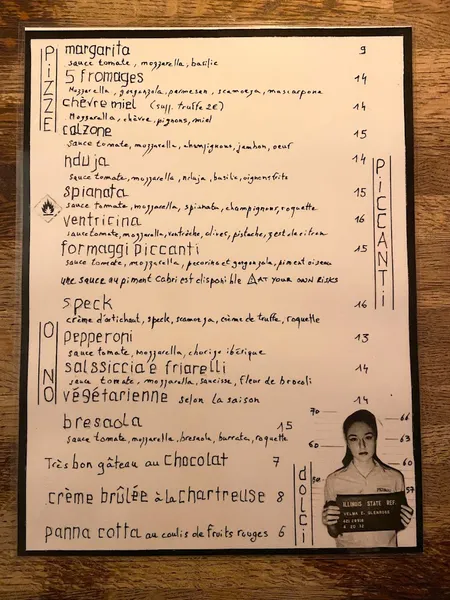 PIZZE
margarita 9
sauce tomate, mozzarella, basilic
5 fromages 14
Mozzarella, gorgonzola, parmesan, scamorza, mascarpone
chèvre miel (supp. truffe 2€) 14
Mozzarella, chèvre, pignons, miel
calzone 15
sauce tomate, mozzarella, champignons, jambon, oeuf
nduja 14
sauce tomate, mozzarella, nduja, basilic, oignons frits
PICCANTI
spianata 15
sauce tomate, mozzarella, spianata, champignons, roquette
ventricina 16
sauce tomate, mozzarella, ventrèche, olives, pistache, zest de citron
formaggi piccanti 15
sauce tomate, mozzarella, pecorino et gorgonzola, piment oiseau
une sauce au piment Cabri est disponible AT YOUR OWN RISKS
O NO
speck 16
crème d'artichaut, speck, scamorza, crème de truffe, roquette
pepperoni 13
sauce tomate, mozzarella, chorizo ibérique
salssiccia e friarelli 14
sauce tomate, mozzarella, saucisse, fleur de brocoli
végétarienne selon la saison 14
bresaola 15
sauce tomate, mozzarella, bresaola, burrata, roquette
dolci
Très bon gâteau au chocolat 7
crème brûlée à la Chartreuse 8
panna cotta au coulis de fruits rouges 6
70 66
60 63
60
50 57
ILLINOIS STATE REF.